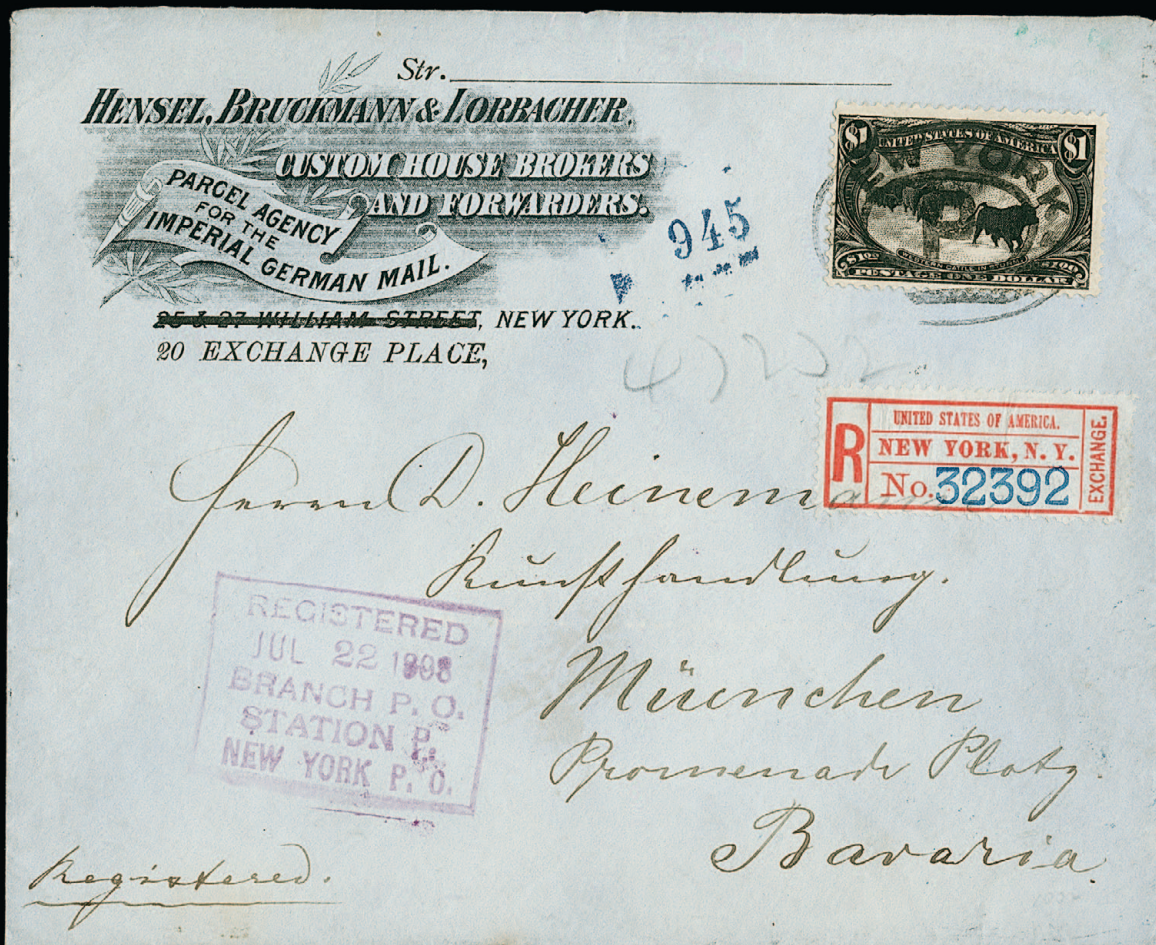 Str.
HENSEL, BRUCKMANN & LORBACHER,
CUSTOM HOUSE BROKERS
AND FORWARDERS.
PARCEL AGENCY
FOR THE
IMPERIAL GERMAN MAIL.
25 & 27 WILLIAM STREET, NEW YORK.
20 EXCHANGE PLACE,
945
$1 UNITED STATES OF AMERICA $1
NEW YORK
P
$1.00 WESTERN CATTLE IN STORM $1.00
POSTAGE ONE DOLLAR
R
UNITED STATES OF AMERICA.
NEW YORK, N. Y.
No. 32392
EXCHANGE.
Herrn D. Heinemann
Kunsthandlung.
München
Promenade Platz.
Bavaria.
REGISTERED
JUL 22 1898
BRANCH P. O.
STATION P.
NEW YORK P. O.
Registered.